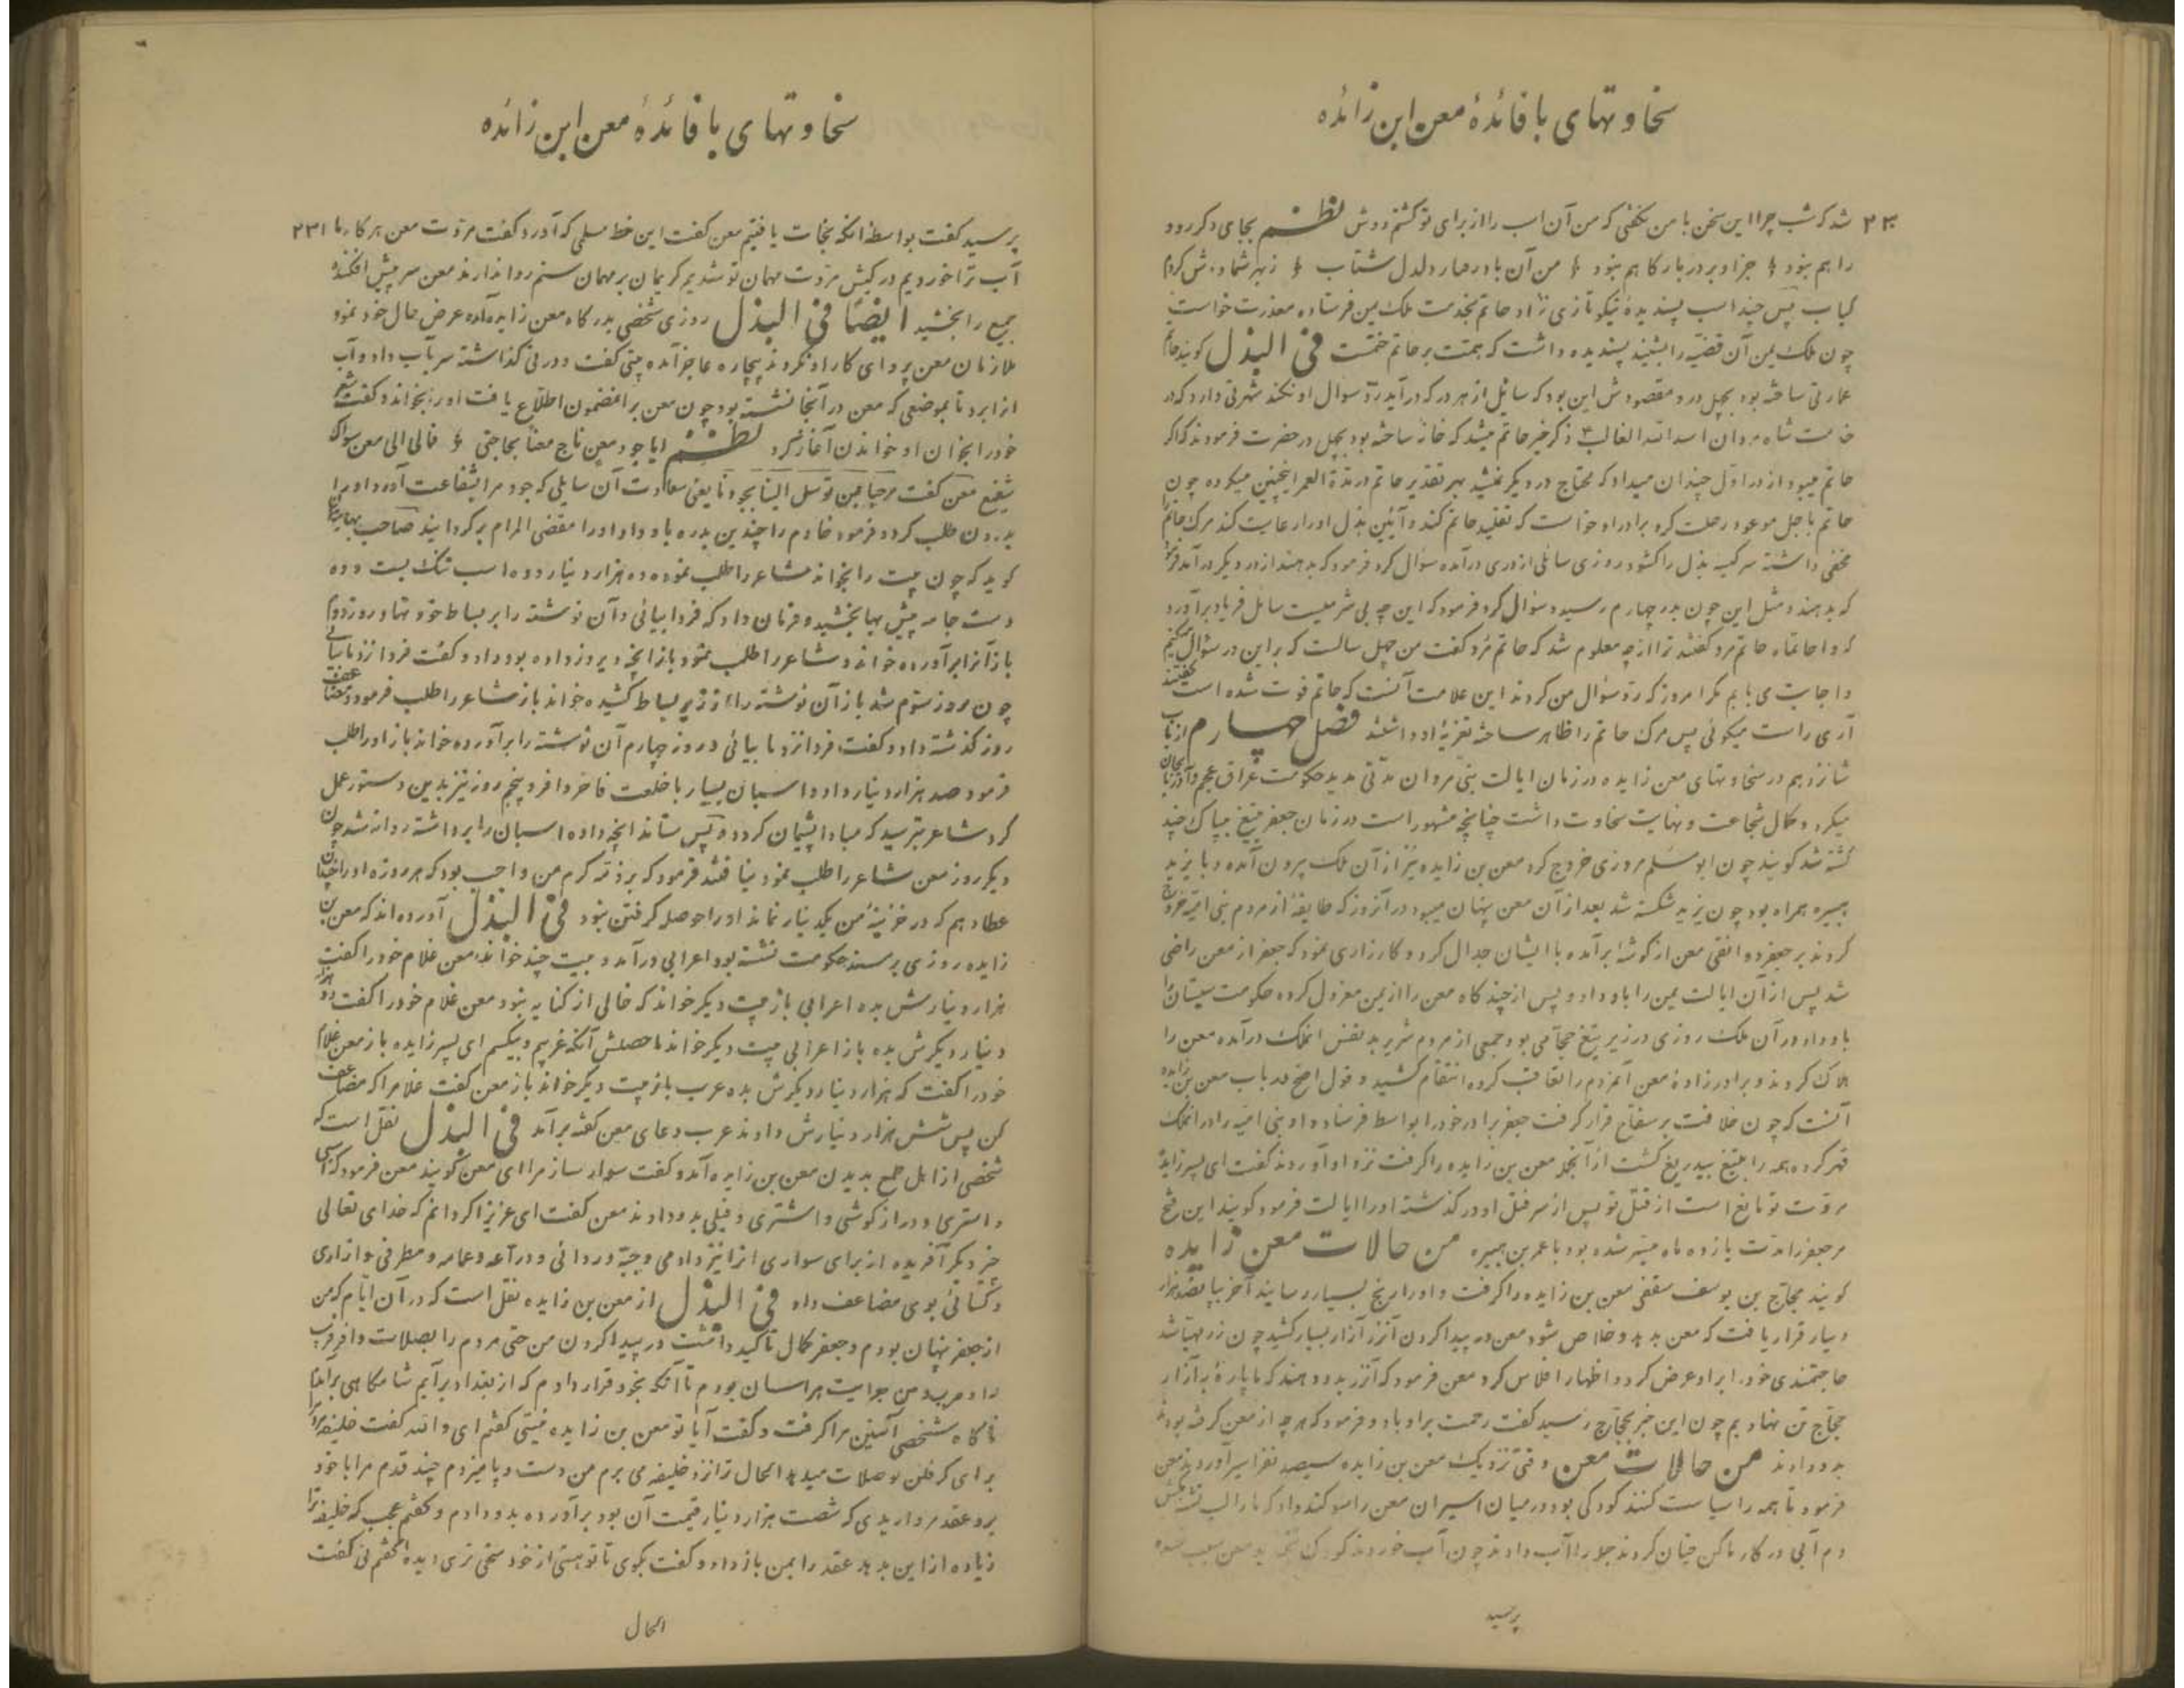 سخاوتهای با فائدۀ معن ابن زائده
۲۳۰ شد که شب چرا این سخن با من نگفتی که من آن اسب را از برای تو کشتم دوش نظم بجای دگر رود
را هم نبود جز او بر در بارگاهم نبود من آن باد رفتار دلدل شتاب ز بهر شما دوش کردم
کباب پس چند اسب پسندیده نیکو تازی نژاد حاتم بخدمت ملک یمن فرستاده معذرت خواست
چون ملک یمن آن قضیه را بشنید پسندیده داشت که همت بر حاتم ختمست فی البذل گویند حاتم
عمارتی ساخته بود بچهل در و مقصودش این بود که سائل از هر در که در آید رد سوال او نکند شهرتی دارد که در
خدمت شاه مردان اسد الله الغالب ذکر خیر حاتم میشد که خانه ساخته بود بچهل در حضرت فرمودند که اگر
حاتم میبود از در اول چندان میداد که محتاج در دیگر نمیشد بهر تقدیر حاتم در مدة العمر اینچنین میکرده چون
حاتم باجل موعود رحلت کرد برادر او خواست که تقلید حاتم کند و آئین بذل او را رعایت کند مرگ حاتم را
مخفی داشته سر کیسه بذل را گشود روزی سائلی از دری درآمده سؤال کرد فرمود که بدهند از در دیگر درآمد فرمود
که بدهند و مثل این چون بدر چهارم رسید و سؤال کرد فرمود که این چه بی شرمیست سائل فریاد برآورد
که وا حاتماه حاتم مرد گفتند ترا از چه معلوم شد که حاتم مرد گفت من چهل سالست که بر این در سؤال میکنم
و اجابت می یابم مگر امروز که رد سؤال من کردند این علامت آنست که حاتم فوت شده است گفتند
آری راست میگوئی پس مرگ حاتم را ظاهر ساخته تعزیۀ او داشتند فصل چهارم از باب
شانزدهم در سخاوتهای معن زایده در زمان ایالت بنی مروان مدتی مدید حکومت عراق عجم و آذربایجان
میکرد و کمال شجاعت و نهایت سخاوت داشت چنانچه مشهور است در زمان جعفر بتیغ بیباک چند
کشته شد گویند چون ابو مسلم مروزی خروج کرد معن بن زایده نیز از آن ملک بیرون آمده و با یزید
هبیره همراه بود چون یزید شکسته شد بعد از آن معن پنهان میبود در آنروز که طایفۀ از مردم بنی امیه خروج
کردند بر جعفر دوانقی معن از گوشۀ برآمده با ایشان جدال کرد و کارزاری نمود که جعفر از معن راضی
شد پس از آن ایالت یمن را باو داد و پس از چند گاه معن را از یمن معزول کرده حکومت سیستان را
باو داد در آن ملک روزی در زیر تیغ حجامی بود جمعی از مردم شریر بد نفس آنملک درآمده معن را
هلاک کردند و برادرزادۀ معن آنمردم را تعاقب کرده انتقام کشید و قول اصح در باب معن بن زایده
آنست که چون خلافت بر سفاح قرار گرفت جعفر برادر خود را بواسط فرستاد و او بنی امیه را در آنملک
قهر کرده همه را بتیغ بیدریغ کشت از آنجمله معن بن زایده را گرفت نزد او آوردند گفت ای پسر زایده
مروت تو مانع است از قتل تو پس از سر قتل او در گذشته او را ایالت فرمود گویند این فتح
مر جعفر را مدت یازده ماه میسر شده بود با عمر بن هبیره من حالات معن زایده
گویند حجاج بن یوسف سقفی معن بن زایده را گرفت و او را رنج بسیار رسانید آخر بپانصد هزار
دینار قرار یافت که معن بدهد و خلاص شود معن در پیدا کردن آنزر آزار بسیار کشید چون زر مهیا شد
حاجتمندی خود را بر او عرض کرد و اظهار افلاس کرد معن فرمود که آنزر بدو دهند که ما پارۀ بآزار
حجاج تن نهادیم چون این خبر بحجاج رسید گفت رحمت بر او باد و فرمود که هر چه از معن گرفته بودند
بدو دادند من حالات معن وقتی نزدیک معن بن زایده سیصد نفر اسیر آوردند معن
فرمود تا همه را سیاست کنند کودکی بود در میان اسیران معن را سوگند داد که ما را لب تشنه مکش
دم آبی در کار ما کن چنان کردند جمله را آب دادند چون آب خوردند کودک
پرسید
سخاوتهای با فائدۀ معن ابن زائده
پرسید گفت بواسطه آنکه نجات یافتیم معن گفت این خط مسلمی که آورد گفت مروت معن هر کار ما ۲۳۱
آب ترا خوردیم در کیش مروت مهمان تو شدیم کریمان بر مهمان ستم روا ندارند معن سر پیش افکنده
جمیع را بخشید ایضاً فی البذل روزی شخصی بدرگاه معن زایده آمده عرض حال خود نمود
ملازمان معن پروای کار او نکردند بیچاره عاجز آمده بیتی گفت و در نی گذاشته سر بآب داد و آب
از ابرد تا بموضعی که معن در آنجا نشسته بود چون معن بر آنمضمون اطلاع یافت او را بخواند و گفت شعر
خود را بخوان او خواندن آغاز کرد نظم ایا جود معن ناج معناً بحاجتی فمالی الی معن سواک
شفیع معن گفت مرحبا بمن توسل الینا بجودنا یعنی سعادت آن سایلی که جود مرا بشفاعت آورد او را
بدرون طلب کرد و فرمود خادم را چندین بدره باو داد و او را مقضی المرام برگردانید صاحب بهارستان
گوید که چون بیت را بخواند شاعر را طلب نموده ده هزار دینار و ده اسب تنگ بست و ده
دست جامه بیش بها بخشید و فرمان داد که فردا بیائی و آن نوشته را بر بساط خود نهاد روز دوم
باز آنرا برآورده خواند و شاعر را طلب نمود باز آنچه دیروز داده بود داد و گفت فردا نزد ما بیائی
چون روز سوم شد باز آن نوشته را از زیر بساط کشیده خواند باز شاعر را طلب فرمود و مضاعف
روز گذشته داد و گفت فردا نزد ما بیائی در روز چهارم آن نوشته را برآورده خواند باز او را طلب
فرمود صد هزار دینار داد و اسبان بسیار با خلعت فاخر داد و پنجم روز نیز بدین دستور عمل
کرد شاعر بترسید که مبادا پشیمان گردد و پس ستاند آنچه داده اسبان را برداشته روانه شد چون
دیگر روز معن شاعر را طلب نمود نیافتند فرمود که بر ذمه کرم من واجب بود که هر روزه او را چندان
عطا دهم که در خزینۀ من یک دینار نماند او را حوصله گرفتن نبود فی البذل آورده اند که معن بن
زایده روزی بر مسند حکومت نشسته بود اعرابی درآمد و بیت چند خواند معن غلام خود را گفت
هزار دینارش بده اعرابی باز بیت دیگر خواند که خالی از کنایه نبود معن غلام خود را گفت دو هزار
دینار دیگرش بده باز اعرابی بیت دیگر خواند ماحصلش آنکه غریبم و بیکسم ای پسر زایده باز معن غلام
خود را گفت که هزار دینار دیگرش بده عرب باز بیت دیگر خواند باز معن گفت غلام را که مضاعف
کن پس شش هزار دینارش دادند عرب دعای معن گفته برآمد فی البذل نقل است که
شخصی از اهل طمع بدیدن معن بن زایده آمد و گفت سوار ساز مرا ای معن گویند معن فرمود که اسبی
و استری و دراز گوشی و اشتری و فیلی بدو دادند معن گفت ای عزیز اگر دانم که خدای تعالی
چیز دیگر آفریده از برای سواری آنرا نیز دادمی و جبه و ردائی و دراعه و عمامه و مطرفی و ازاری
و کسائی بوی مضاعف داد فی البذل از معن بن زایده نقل است که در آن ایام که من
از جعفر پنهان بودم و جعفر کمال تأکید داشت در پیدا کردن من حتی مردم را بصلات وافر فریب
داد من بسیار هراسان بودم تا آنکه بخود قرار دادم که از بغداد برآیم شامگاهی برآمدم
ناگاه شخصی آستین مرا گرفت و گفت آیا تو معن بن زایده نیستی گفتم ای والله گفت خلیفه مرا
برای گرفتن تو صلات میدهد الحال ترا نزد خلیفه می برم من دست و پا میزدم چند قدم مرا با خود
برد عقد مرواریدی که شصت هزار دینار قیمت آن بود برآورده بدو دادم و گفتم عجب که خلیفه ترا
زیاده از این بدهد عقد را بمن باز داد و گفت بگوی تا تو هستی از خود سخی تری دیده گفتم نی گفت
الحال